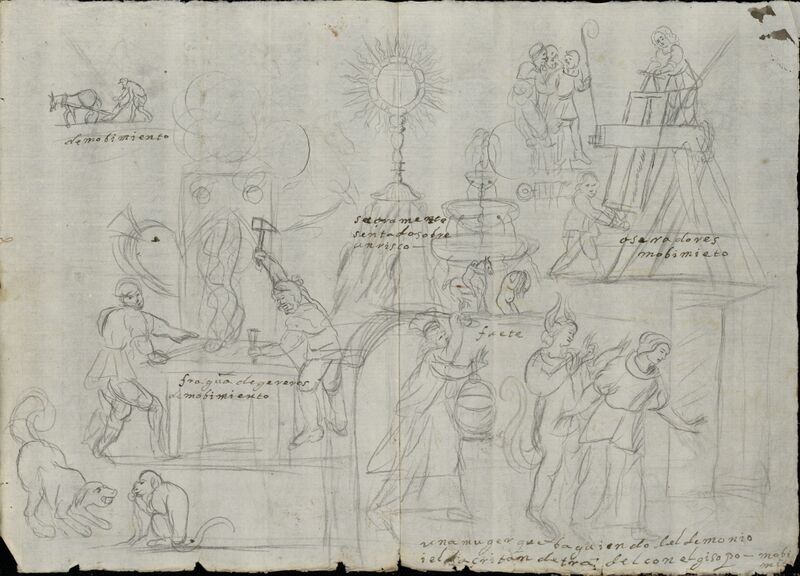 demobimiento
sacramente
sentado sobre
un risco
aseradores
mobimieto
fuete
fragua de gereros
demobimiento
una muger que ba guiendo del demonio
i el sacritan detras del con el gisopo mobi